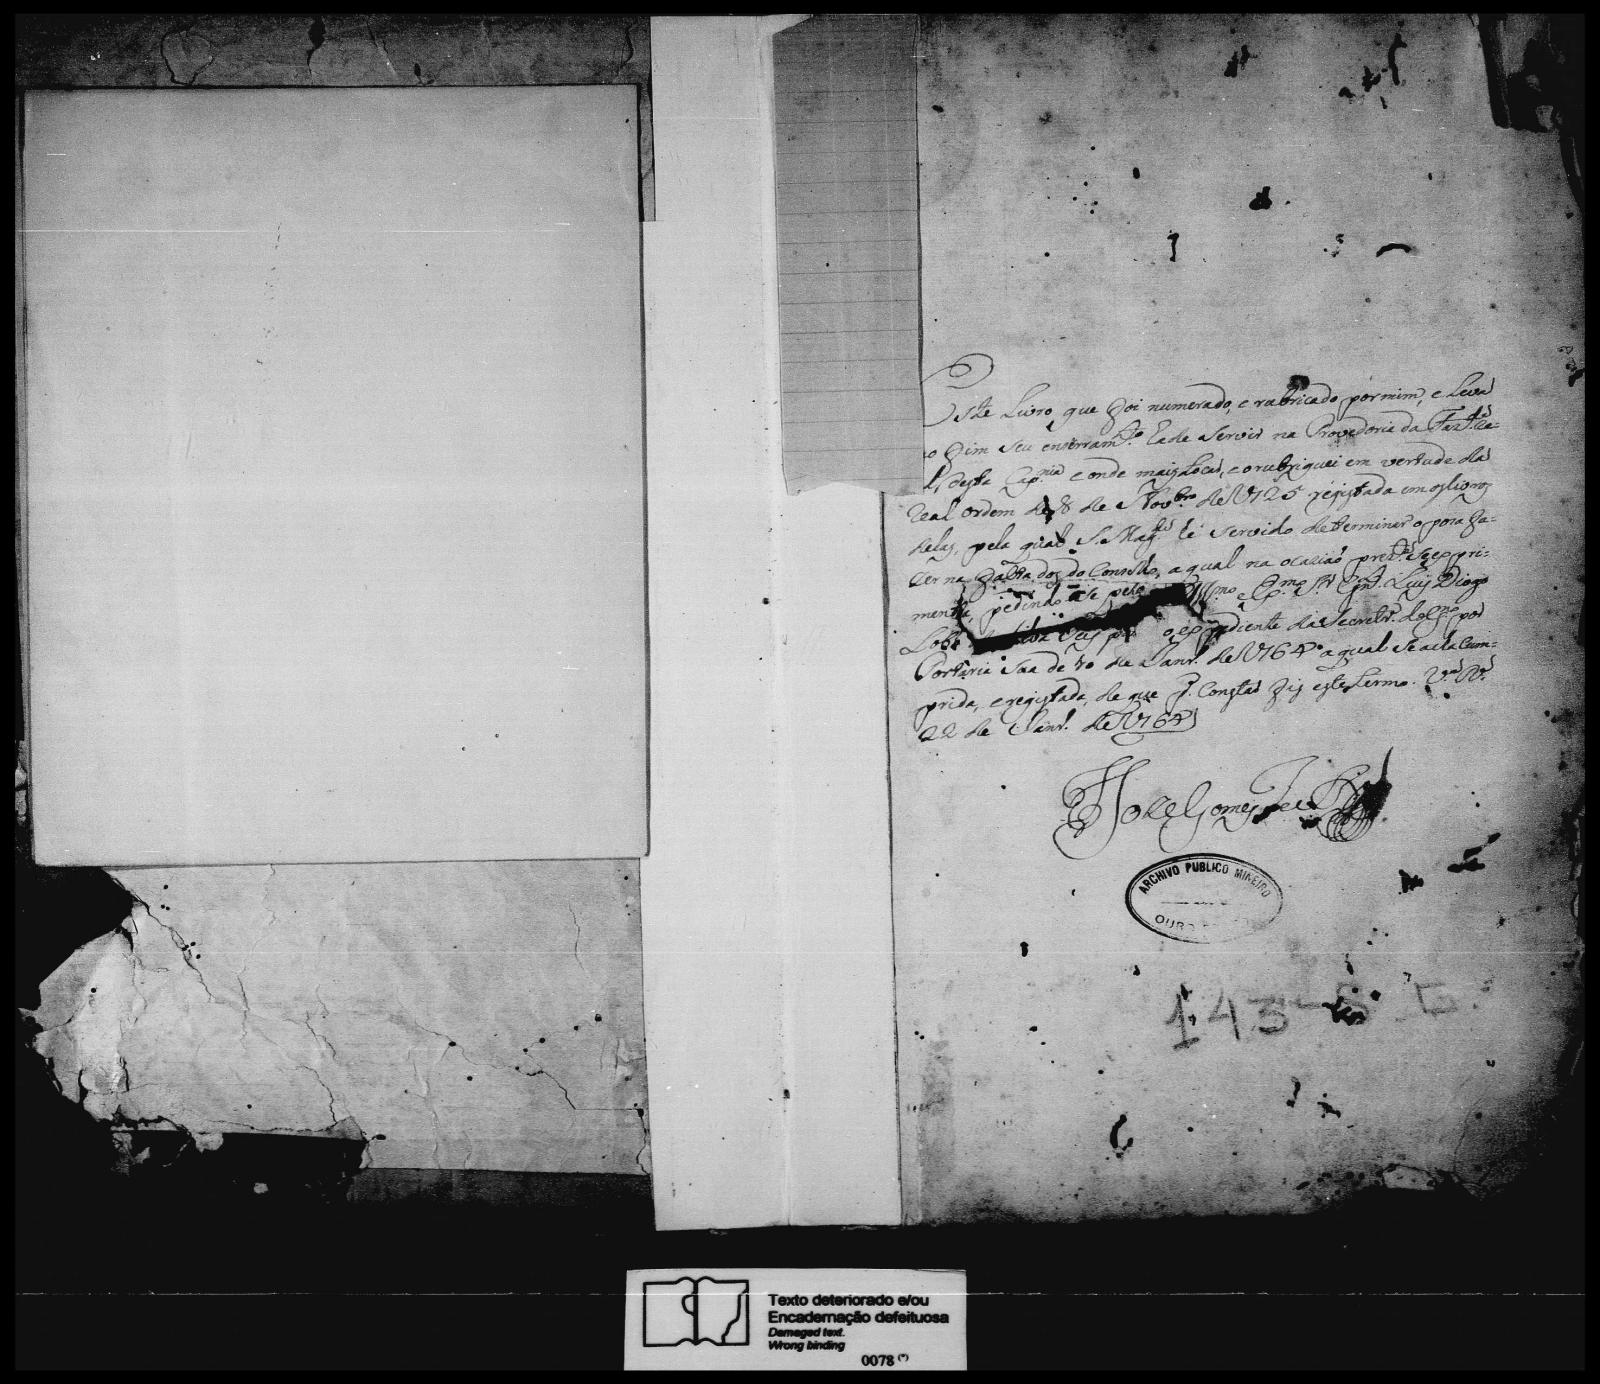 Este Livro, que foi numerado, e rubricado por mim, e Leva
o fim seu enserram.to hade servir na Provedoria da Faz.da Re-
l, desta Cap.nia e onde mais tocar, e o rubriquei em vertude da
Real ordem de 8 de Nov.bro de 1725 registada em os livros
delas, pela qual S. Mag.de hé servido determinar o possa fa-
zer na falta dos do Concelho, a qual na ocazião prez.te se expri-
menta, pedindo pelo Illmo e Ex.mo S.r Gn.l Luis Diogo
Lobo da Silva o expediente da Secretr.a do gn.o por
Portaria Sua de 10 de Janr.o de 1764 a qual se acha Cum-
prida, e registada, de que p.a Constar fiz este termo. V.a R.a
22 de Janr.o de 1764
Joze Gomes
ARCHIVO PUBLICO MINEIRO
OURO
143
Texto deteriorado e/ou
Encadernação defeituosa
Damaged text.
Wrong binding
0078 (*)